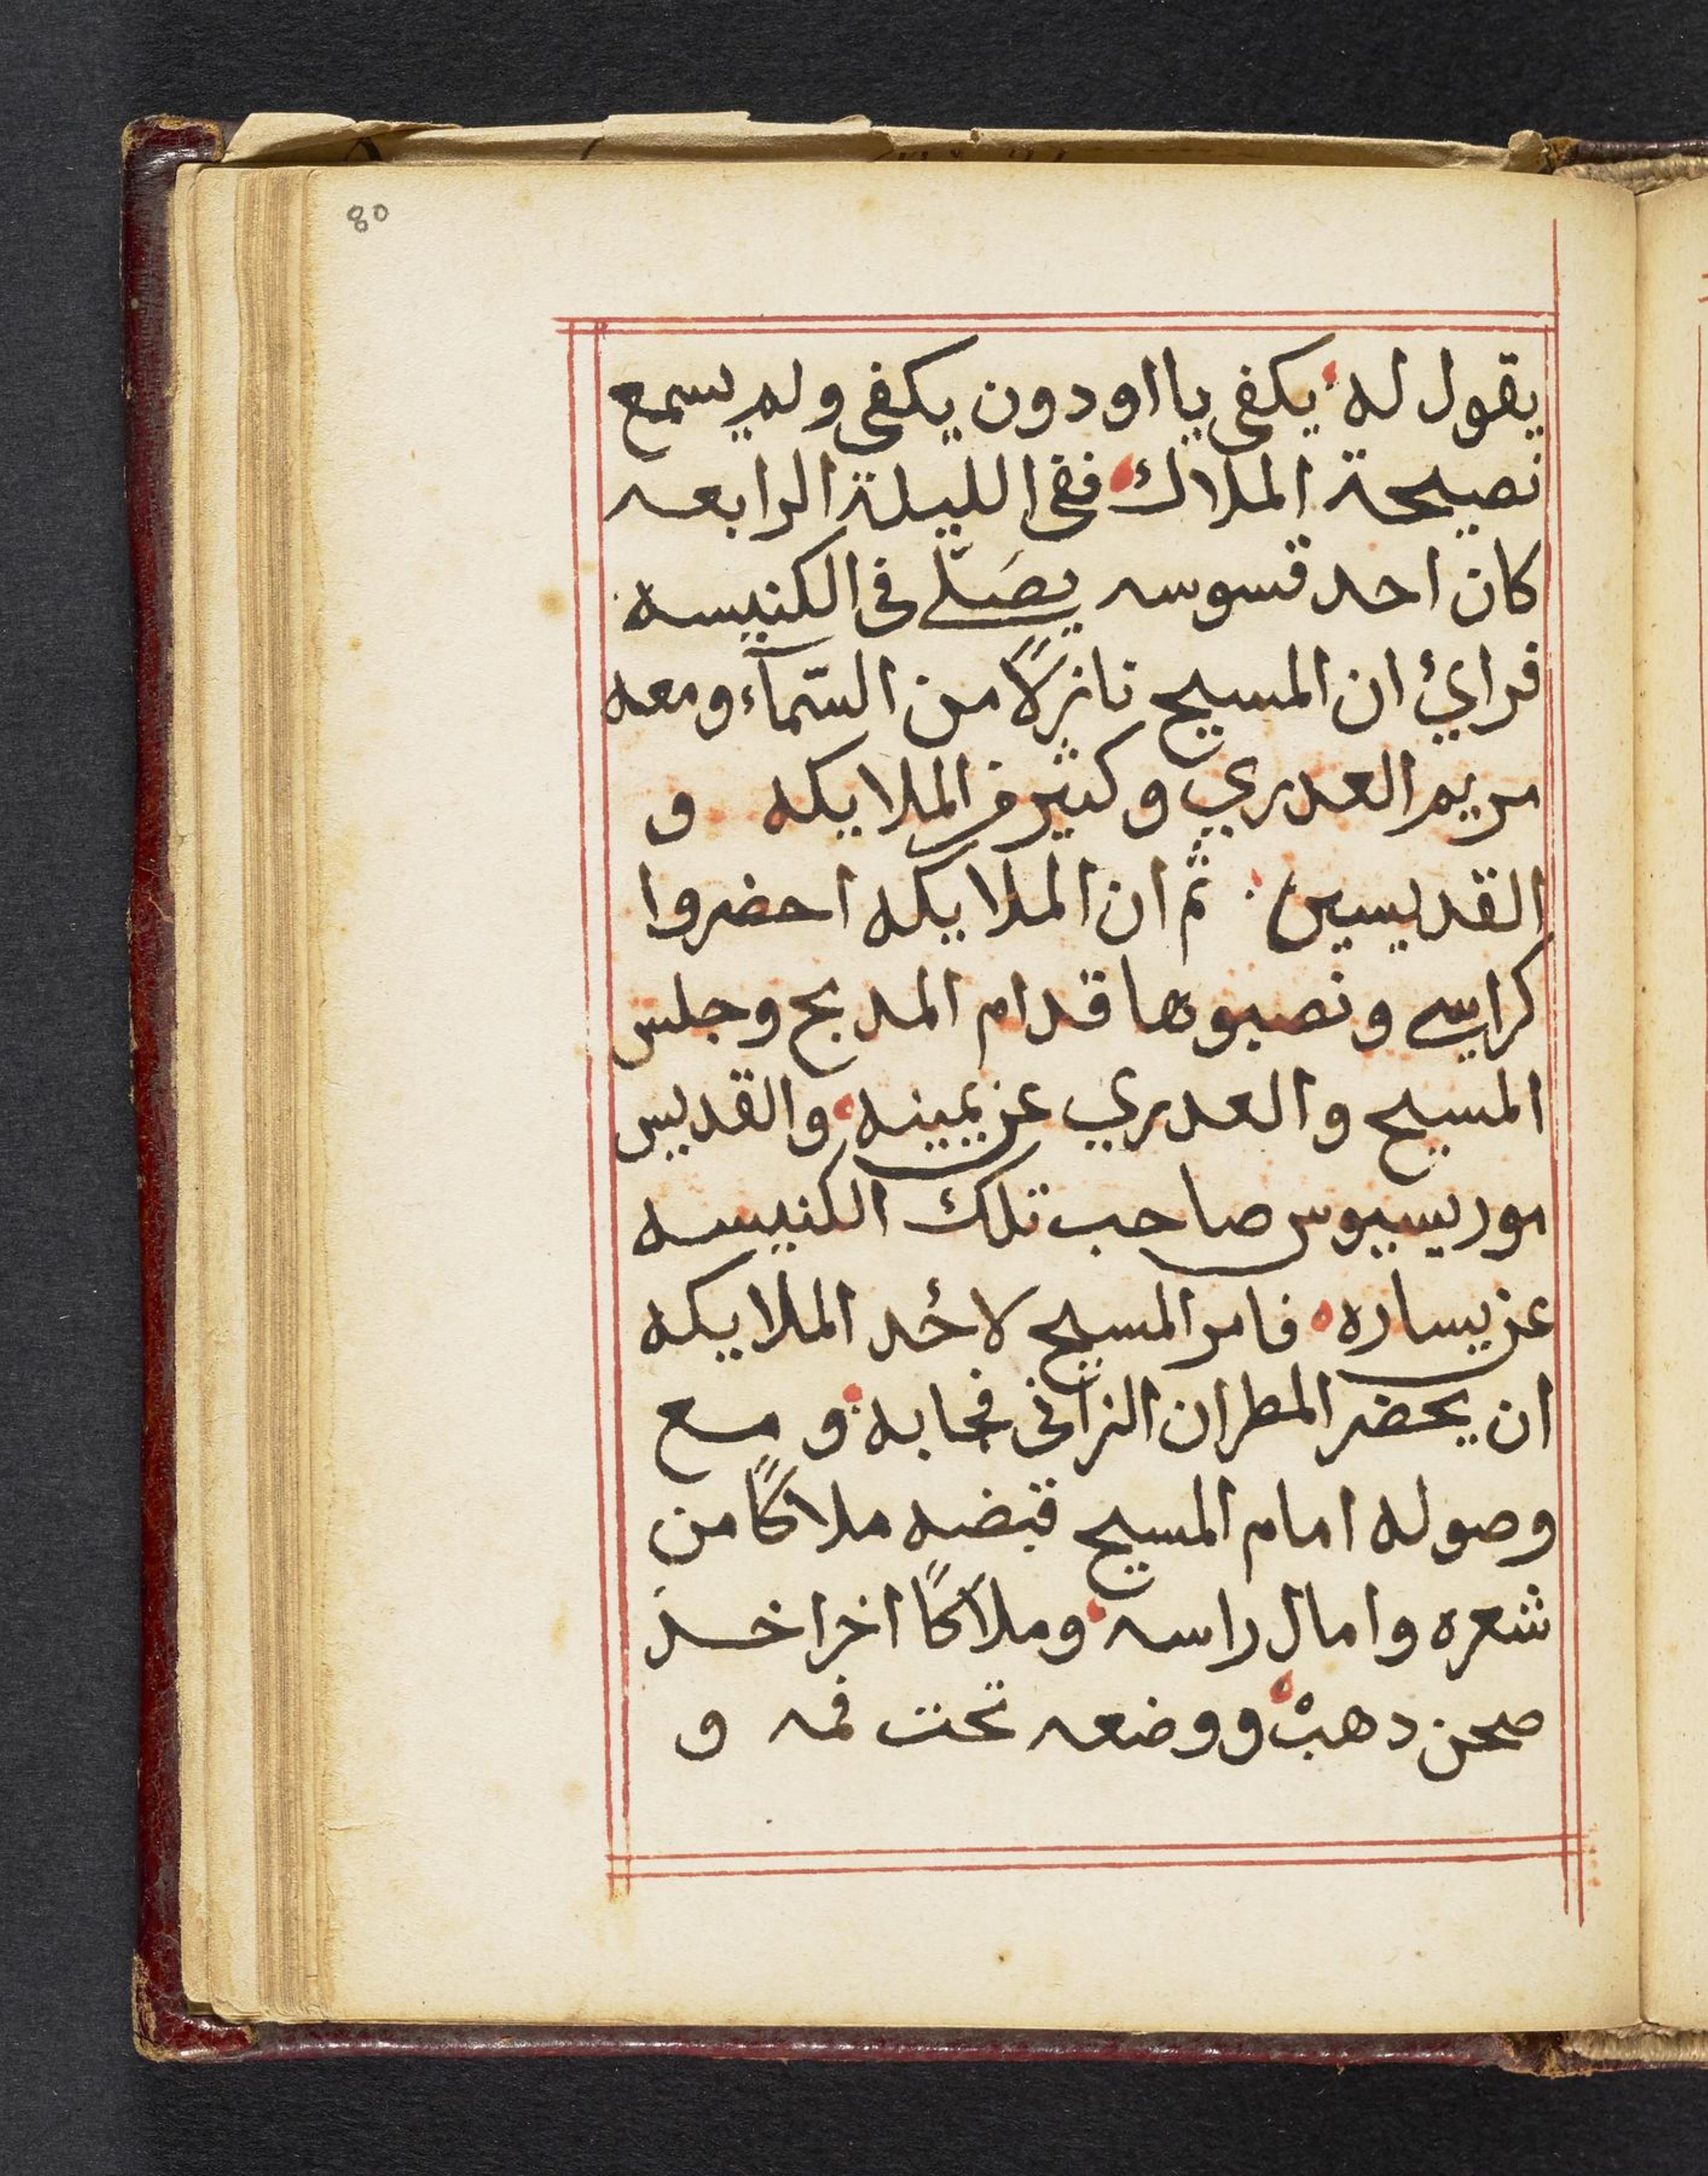 80
يقول له يكفى يا اودون يكفى ولم يسمع
نصيحة الملاك ففى الليلة الرابعه
كان احد قسوسه يصَلّے فى الكنيسه
فرائ ان المسيح نازلًا من السّمآء ومعه
مريم العدري وكثير من الملايكه و
القديسين ثم ان الملايكه احضروا
كراسے ونصبوها قدام المدبح وجلس
المسيح والعدري عن يمينه والقديس
موريسيوس صاحب تلك الكنيسه
عن يساره فامر المسيح لاحٔد الملايكه
ان يحضر المطران الزانى فجابه و مع
وصوله امام المسيح قبضه ملاكًا من
شعره وامال راسه وملاكًا اخر اخذ
صحن دهبْ ووضعه تحت فمه و